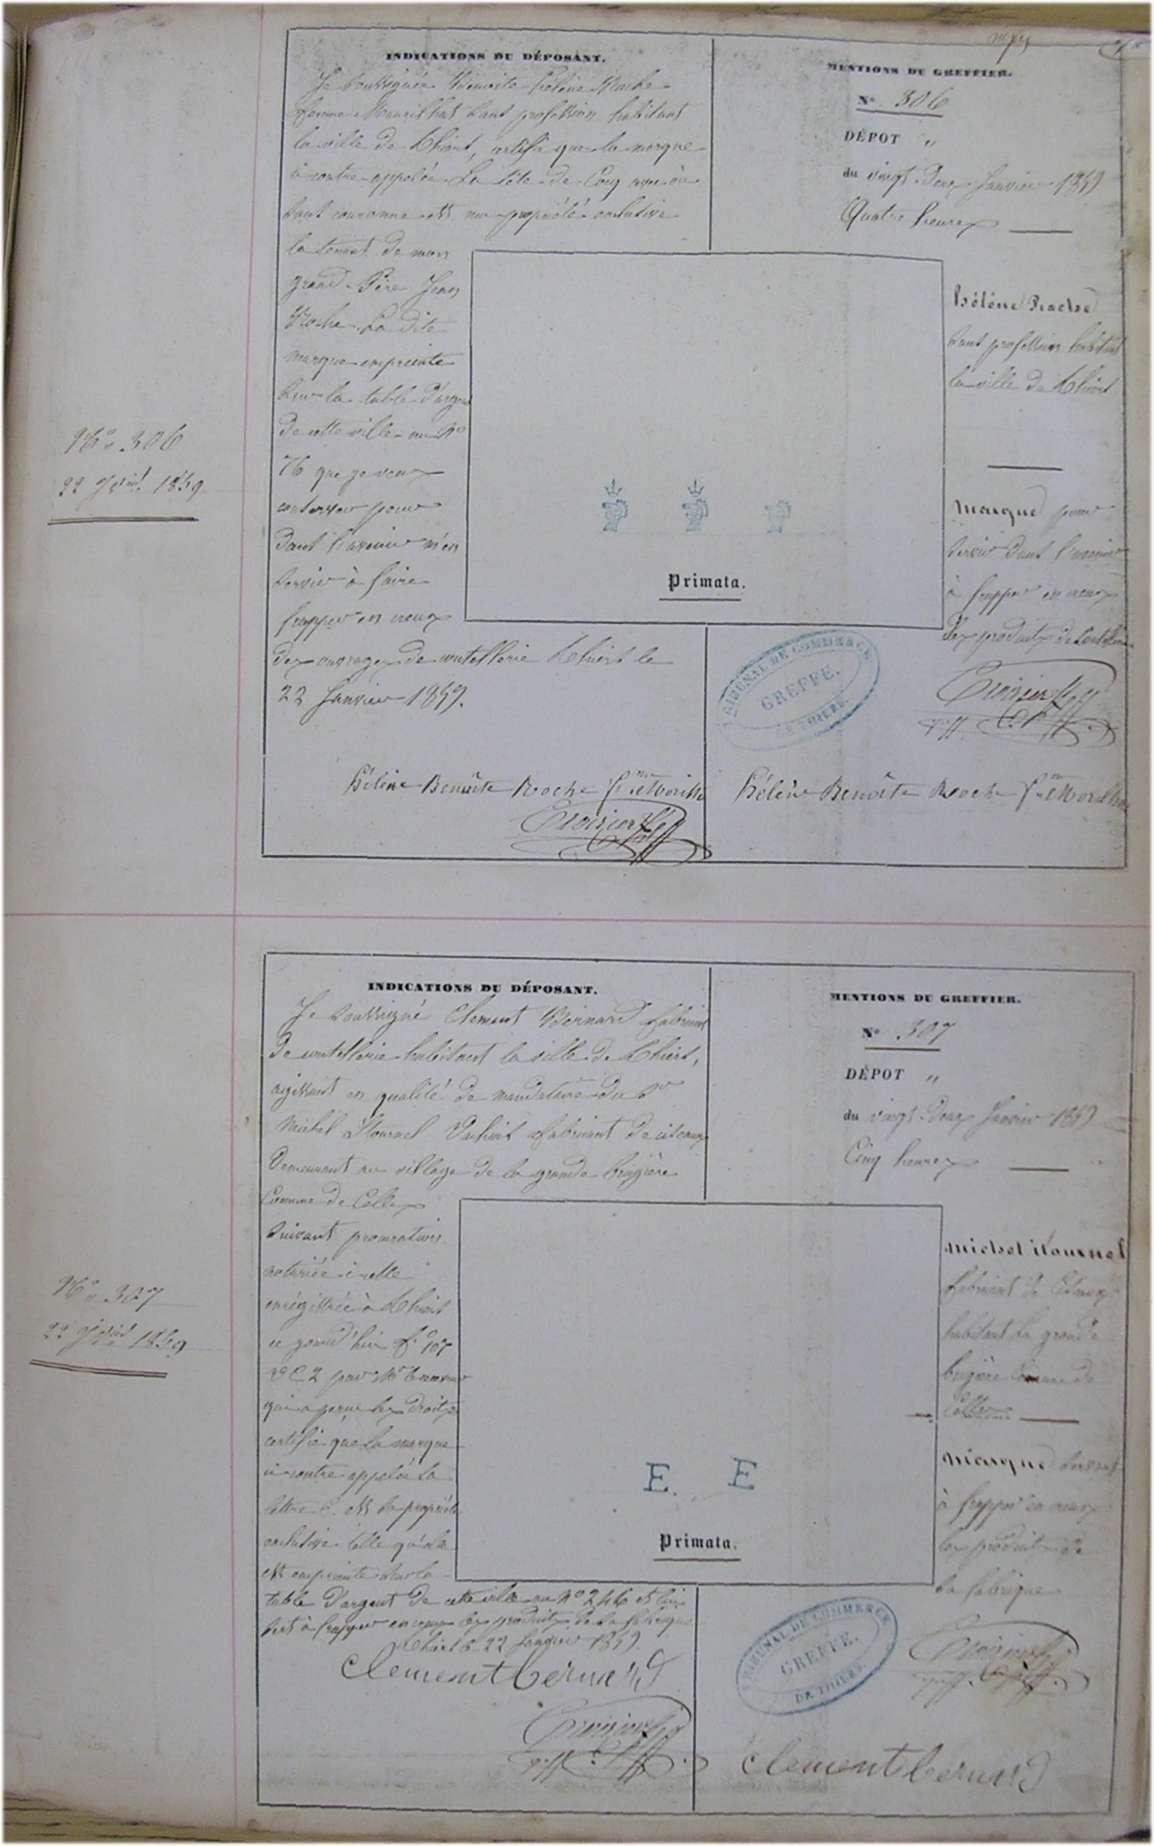 INDICATIONS DU DÉPOSANT.
Je soussignée Benoite hélène Roche
femme Mourilhat sans profession habitant
la ville de Thiers, certifie que la marque
ci contre appelée La tête de Coq avec ou
sans couronne est ma propriété exclusive
la tenant de mon
grand Père Jean
Roche. La dite
marque empreinte
sur la table d'argent
de cette ville au No
76 que je veux
conserver pour
dans l'avenir m'en
servir à faire
frapper en creux
des ouvrages de coutellerie Thiers le
22 Janvier 1859.
hélène Benoîte Roche fme
MENTIONS DU GREFFIER.
No 306
DÉPOT "
du vingt Deux Janvier 1859
Quatre heures
hélène Roche
sans profession habitant
la ville de Thiers
Marque pour
servir dans l'avenir
à frapper en creux
les produits de Coutellerie
hélène Benoîte Roche fme
Primata.
TRIBUNAL DE COMMERCE
GREFFE.
DE THIERS.
No 306
22 Jvier 1859
INDICATIONS DU DÉPOSANT.
Je soussigné Clement Bernard fabricant
de coutellerie habitant la ville de Thiers,
agissant en qualité de mandataire du Sr
Michel fabricant de ciseaux
demeurant au village de la grande bruyère
Commune de Celles
suivant procuration
notariée
enrégistrée à Thiers
ce jourd'hui fo 107
Vo C 2 par Mr
qui a perçu les droits
certifie que la marque
ci contre appelée la
lettre E est la propriété
exclusive telle qu'elle
est empreinte sur la
table d'argent de cette ville au No 246 et lui
sert à frapper en creux les produits de sa fabrique
Thiers le 22 Janvier 1859.
Clement bernard
MENTIONS DU GREFFIER.
No 307
DÉPOT "
du vingt Deux Janvier 1859
Cinq heures
Michel
fabricant de Ciseaux
habitant la grande
bruyère Commune de
Celles
Marque servant
à frapper en creux
les produits de
sa fabrique
E. E
Primata.
TRIBUNAL DE COMMERCE
GREFFE.
DE THIERS.
clement bernard
No 307
22 Jvier 1859